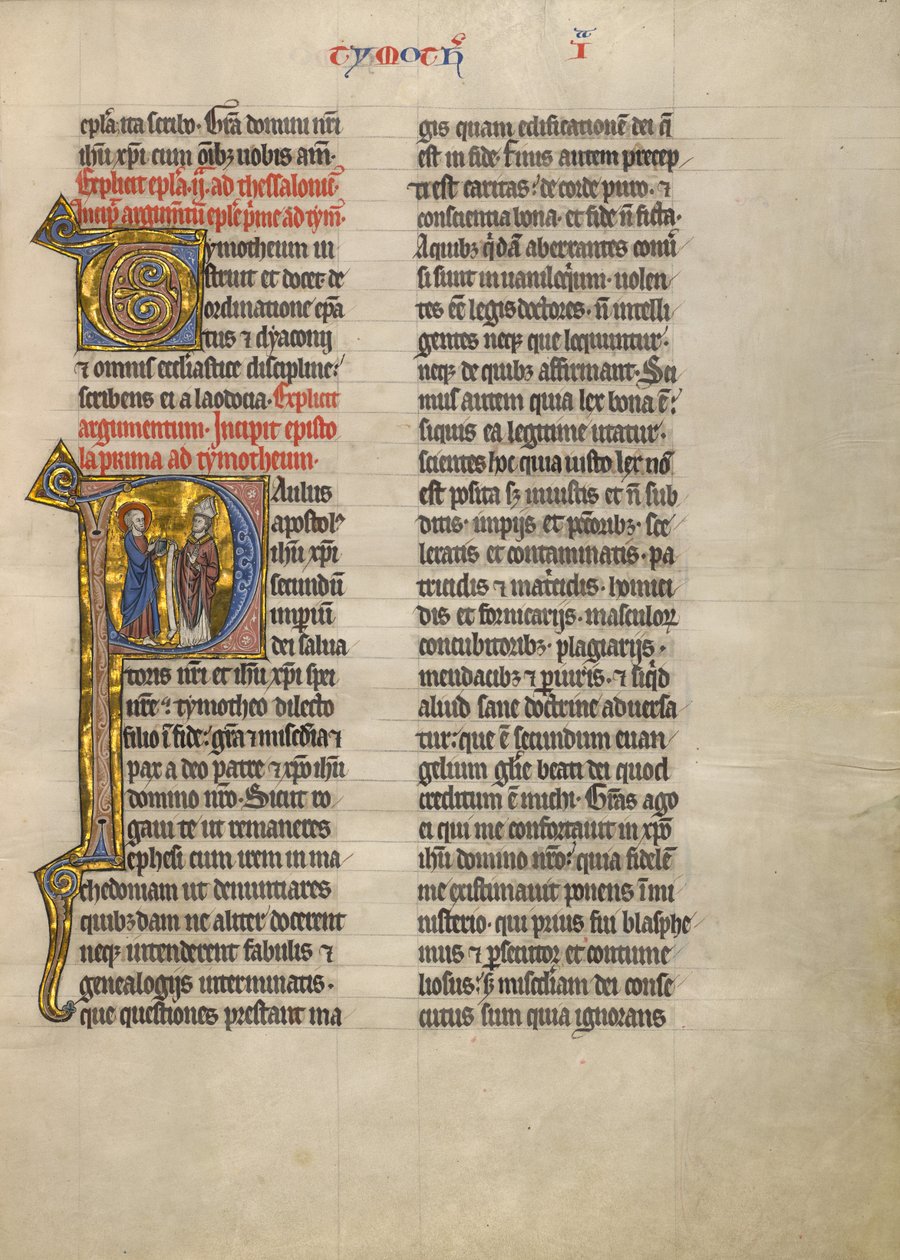 TYMOTH I
epl̃a ita scribo. Gr̃a domini nr̃i
ihũ xp̃i cum õibꝫ uobis am̃.
Explicit epl̃a .ij. ad thessalonic̃.
Incip̃ argum̃tũ epl̃e p̃me ad tym̃.
Tymotheum in
struit et docet de
ordinatione ep̃a
tus ⁊ dyaconij
⁊ omnis eccl̃iastice discipline:
scribens ei a laodocia. Explicit
argumentum. Incipit episto
la prima ad tymotheum.
PAulus
apostolꝰ
ihũ xp̃i
secundũ
imp̃iũ
dei salua
toris nr̃i et ihũ xp̃i spei
nr̃e: tymotheo dilecto
filio ĩ fide: gr̃a ⁊ miscd̃ia ⁊
pax a deo patre ⁊ xp̃o ihũ
domino nr̃o. Sicut ro
gaui te ut remaneres
ephesi cum irem in ma
chedoniam ut denuntiares
quibꝫdam ne aliter docerent
neqꝫ intenderent fabulis ⁊
genealogijs interminatis.
que questiones prestant ma
gis quam edificationẽ dei q̃
est in fide. Finis autem precep
ti est caritas: de corde puro. ⁊
conscientia bona. et fide ñ ficta.
A quibꝫ q̃dã aberrantes conũ
si sunt in uaniloq̃um. uolen
tes ẽe legis doctores. ñ intelli
gentes neqꝫ que loquuntur.
neqꝫ de quibꝫ affirmant. Sci
mus autem quia lex bona ẽ:
siquis ea legitime utatur.
scientes hoc quia iusto lex nõ
est posita sꝫ iniustis et ñ sub
ditis. impijs et pc̃toribꝫ. sce
leratis et contaminatis. pa
tricidis ⁊ mat̃cidis. homici
dis et fornicarijs. masculoꝝ
concubitoribꝫ. plagiarijs.
mendacibꝫ ⁊ ꝑiuris. ⁊ siq̃d
aliud sane doctrine aduersa
tur: que ẽ secundum euan
gelium gl̃ie beati dei quod
creditum ẽ michi. Gr̃as ago
ei qui me confortauit in xp̃o
ihũ domino nr̃o: quia fidelẽ
me existimauit ponens ĩ mi
nisterio. qui prius fui blasphe
mus ⁊ ꝑsecutoꝝ et contume
liosus: ꝫ miscd̃iam dei conse
cutus sum quia ignorans